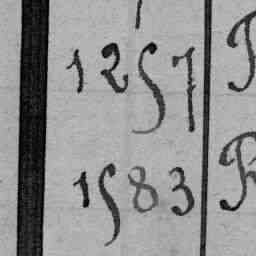 1257
1583